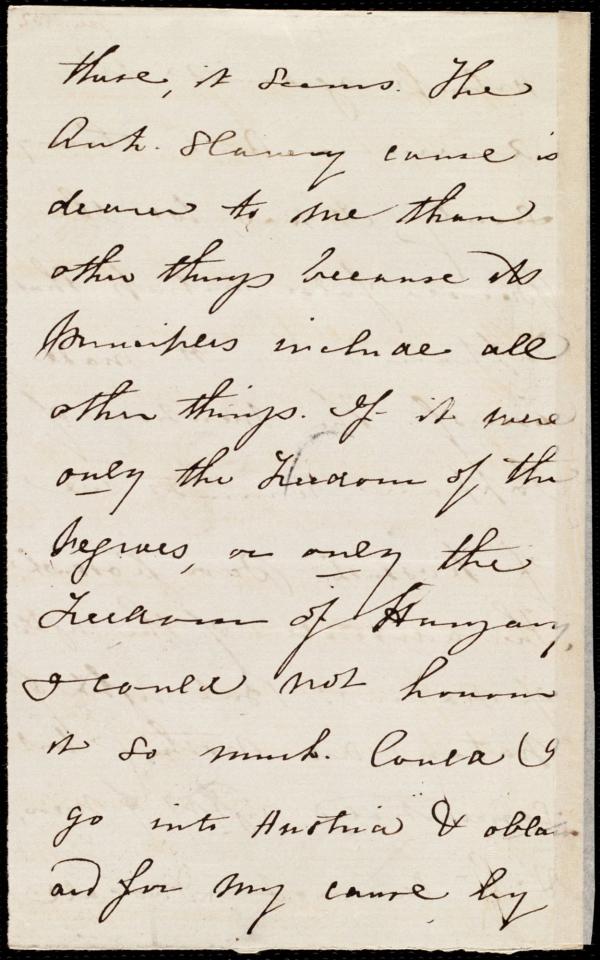 these, it seems. The
Anti-Slavery cause is
dearer to me than
other things because its
principles include all
other things. If it were
only the Freedom of the
Negroes, or only the
Freedom of Hungary,
I could not honour
it so much. Could I
go into Austria & obtain
aid for my cause by